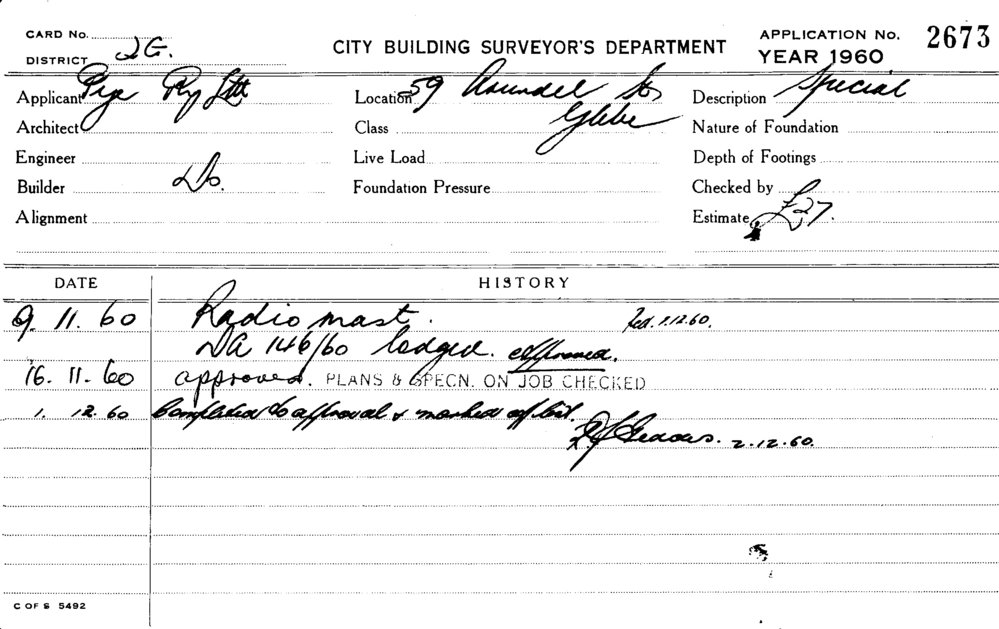 CARD No.
DISTRICT 2G.
CITY BUILDING SURVEYOR'S DEPARTMENT
APPLICATION No. 2673
YEAR 1960
Applicant Pye Pty Ltd
Location 59 Arundel St Glebe
Description Special
Architect
Class
Nature of Foundation
Engineer
Live Load
Depth of Footings
Builder Do.
Foundation Pressure
Checked by
Alignment
Estimate £27.
DATE
HISTORY
9. 11. 60 Radio mast. 2.12.60.
DA 146/60 lodged. approved.
16. 11. 60 approved. PLANS & SPECN. ON JOB CHECKED
1. 12. 60 Completed to approval & marked off list.
2.12.60.
C OF S 5492